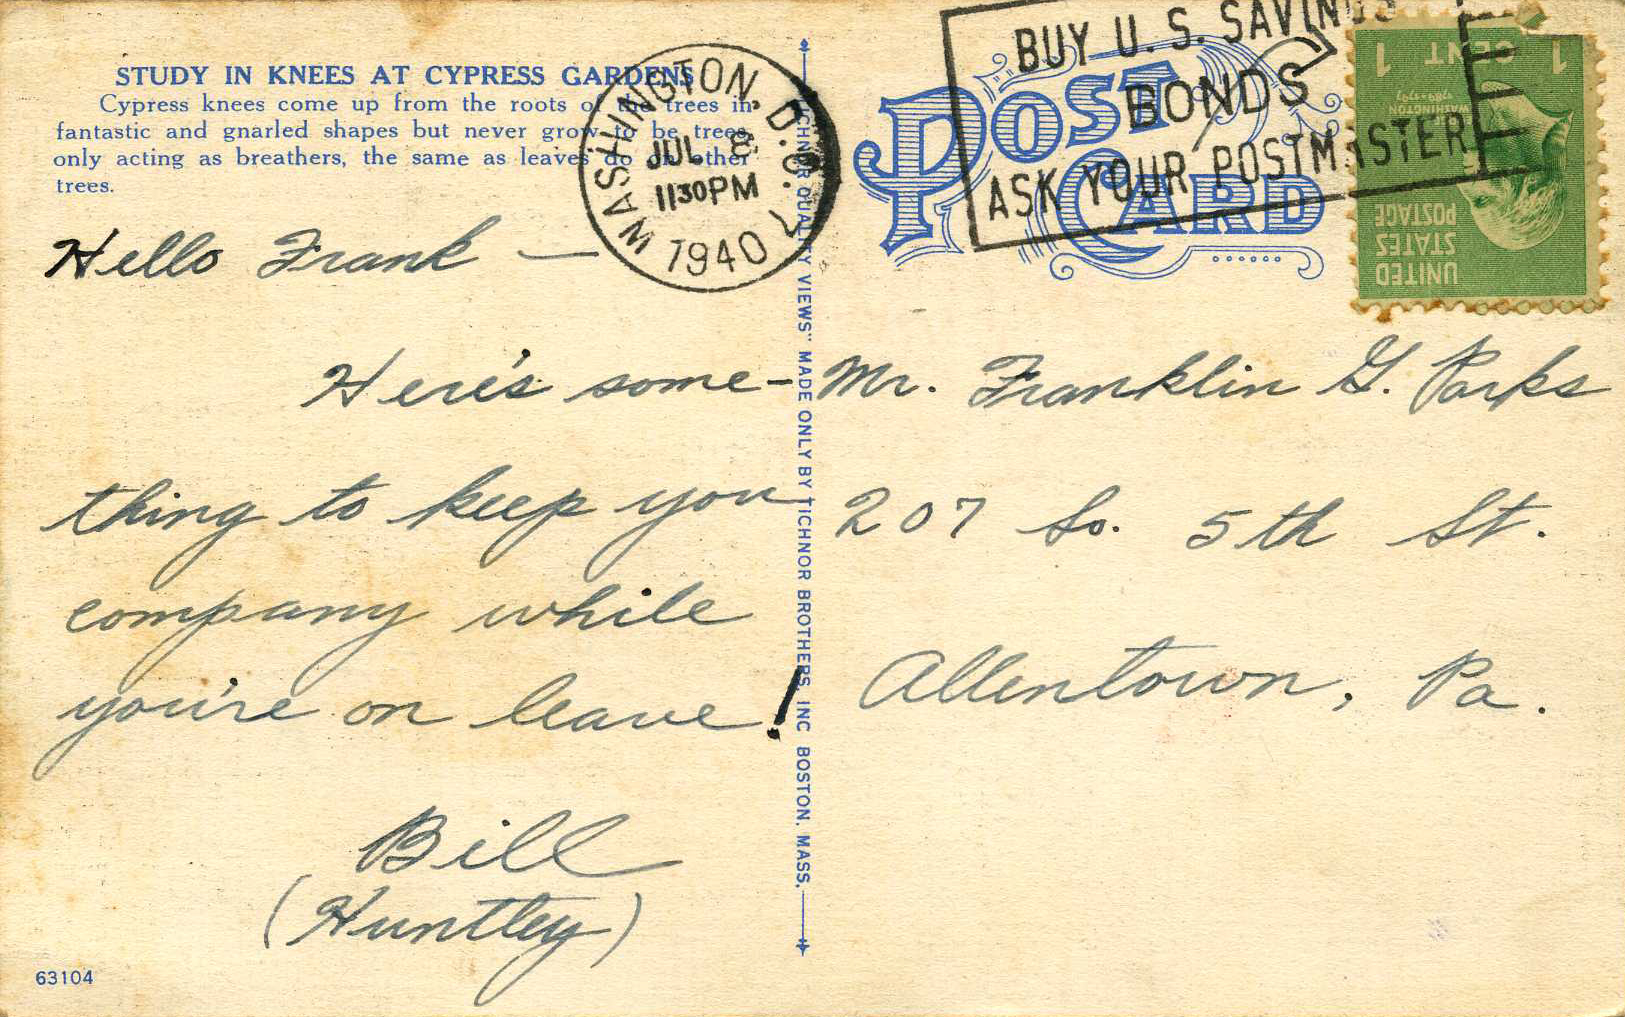 STUDY IN KNEES AT CYPRESS GARDENS
Cypress knees come up from the roots of the trees in
fantastic and gnarled shapes but never grow to be trees,
only acting as breathers, the same as leaves do on other
trees.
WASHINGTON, D.C.
JUL 8
1130PM
1940
BUY U.S. SAVINGS
BONDS
ASK YOUR POSTMASTER
POST
CARD
1 CENT 1
WASHINGTON
1789-1797
UNITED
STATES
POSTAGE
Hello Frank —
Here's some-
thing to keep you
company while
you're on leave!
Bill
(Huntley)
Mr. Franklin G. Parks
207 So. 5th St.
Allentown, Pa.
TICHNOR QUALITY VIEWS" MADE ONLY BY TICHNOR BROTHERS, INC BOSTON, MASS.
63104